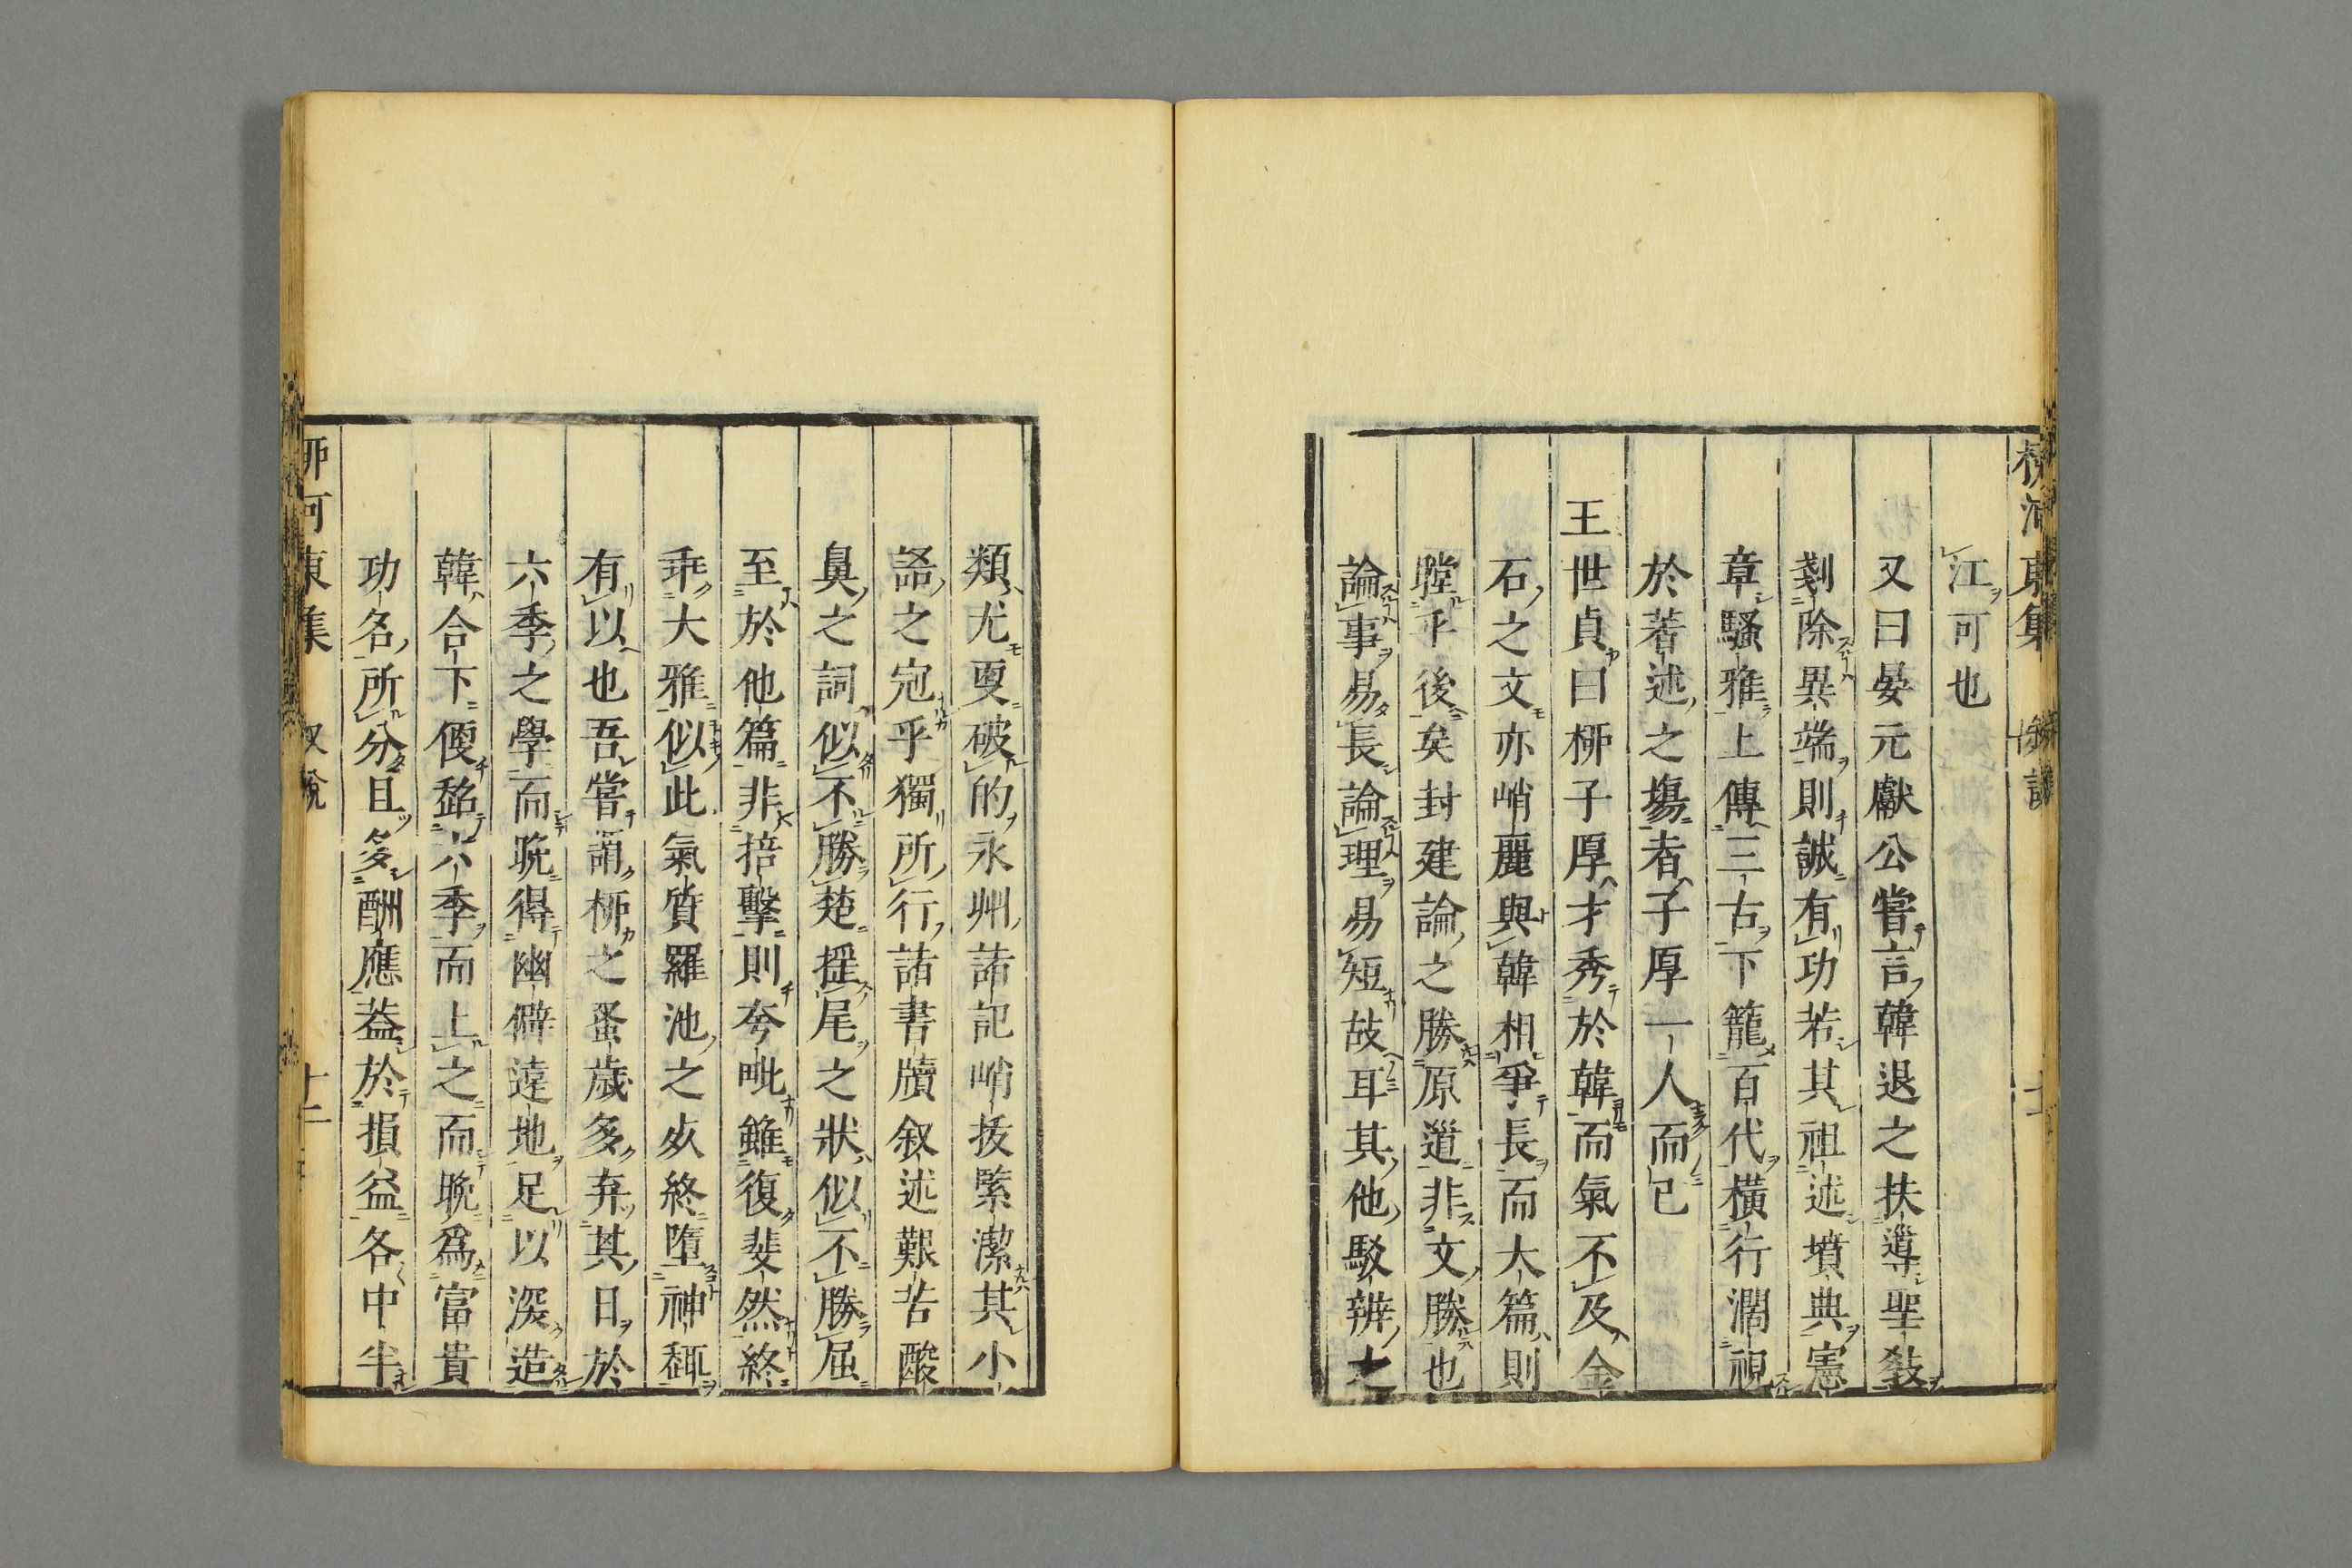 江可也
又曰晏元獻公嘗言韓退之扶導聖敎
剗除異端則誠有功若其祖述墳典憲
章騷雅上傳三古下籠百代橫行濶視
於著述之塲者子厚一人而已
王世貞曰桺子厚才秀於韓而氣不及金
石之文亦峭麗與韓相爭長而大篇則
瞠乎後矣封建論之勝原道非文勝也
論事易長論理易短故耳其他駁辨之
類尤更破的永州諸記峭拔緊潔其小
語之冠乎獨所行諸書牘叙述艱苦酸
鼻之詞似不勝楚搖尾之狀似不勝屈
至於他篇非掊擊則夸毗雖復斐然終
乖大雅似此氣質羅池之死終墮神趣
有以也吾嘗謂桺之蚤歲多弃其日於
六季之學而晚得幽僻遠地足以深造
韓合下便超六季而上之而晚爲富貴
功名所分且多酬應葢於損益各中半
東集